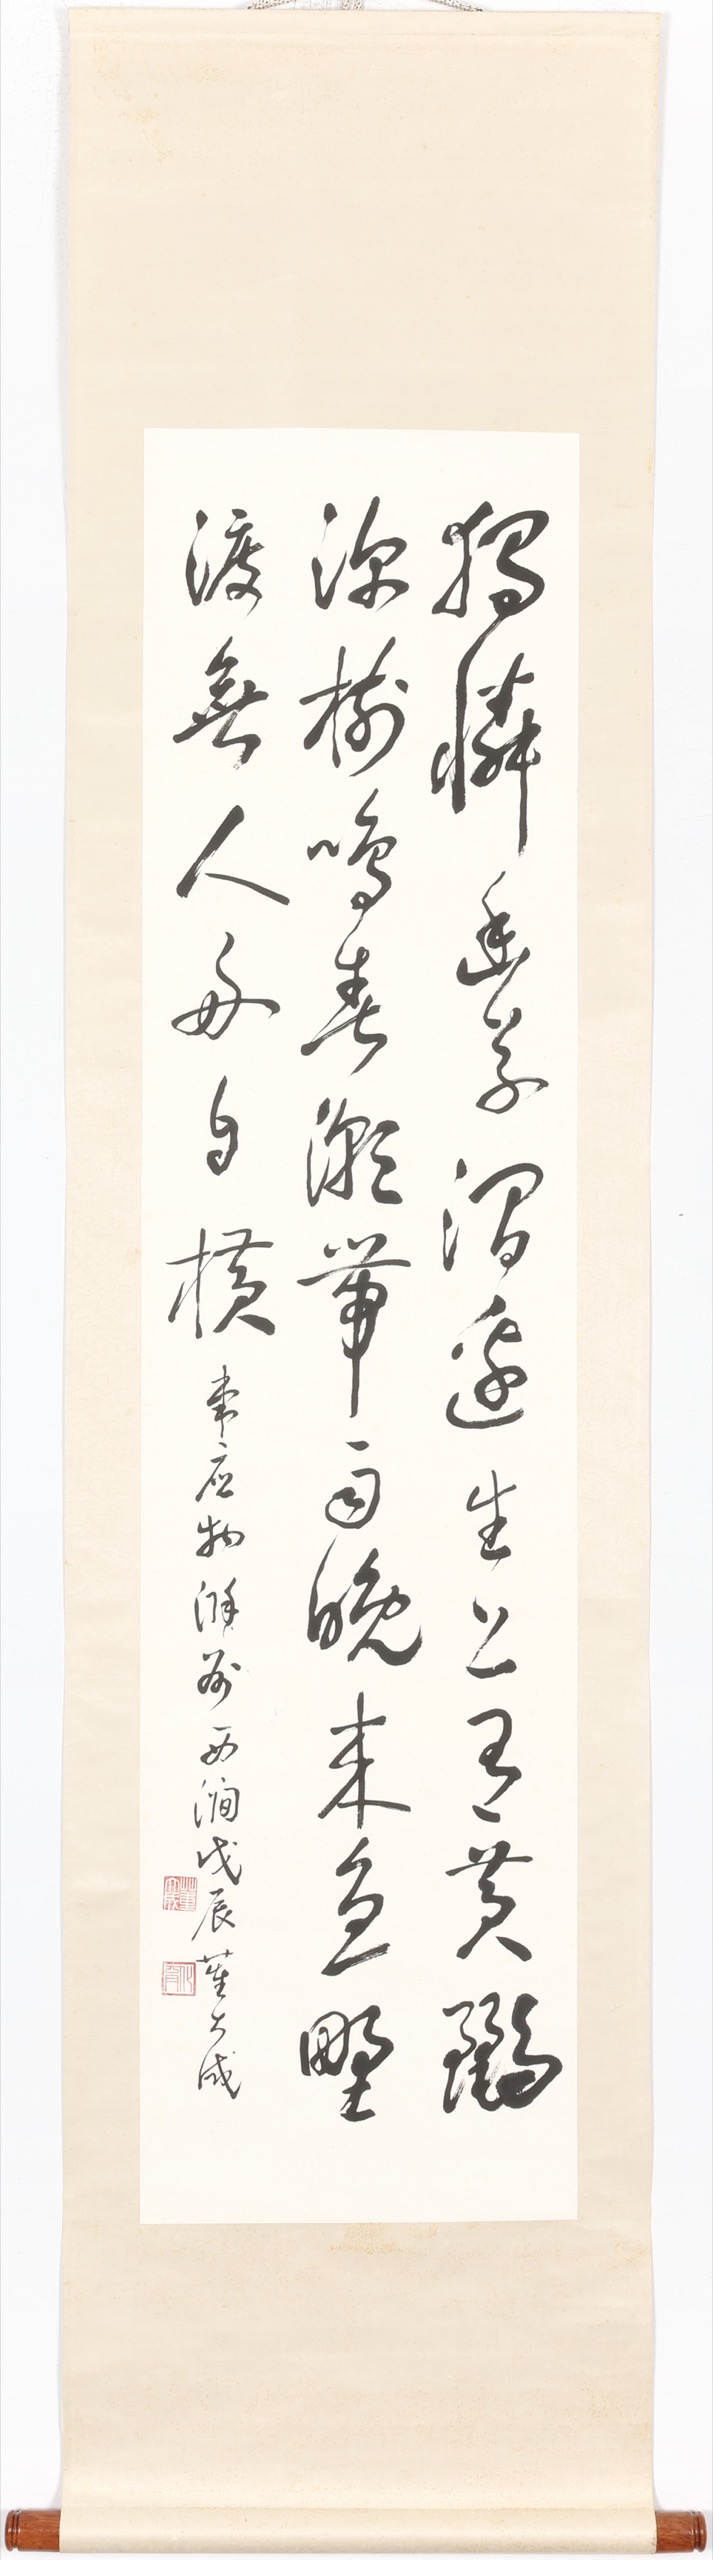 獨憐幽草澗邊生上有黃鸝
深樹鳴春潮帶雨晚來急野
渡無人舟自橫 韋应物滁州西澗戊辰董大成